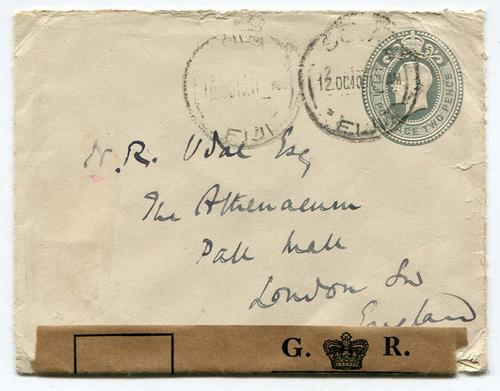 FIJI
12.OC
FIJI
POSTAGE TWO PENCE
N. R. Udal Esq
The Athenaeum
Pall Mall
London SW
England
G. R.